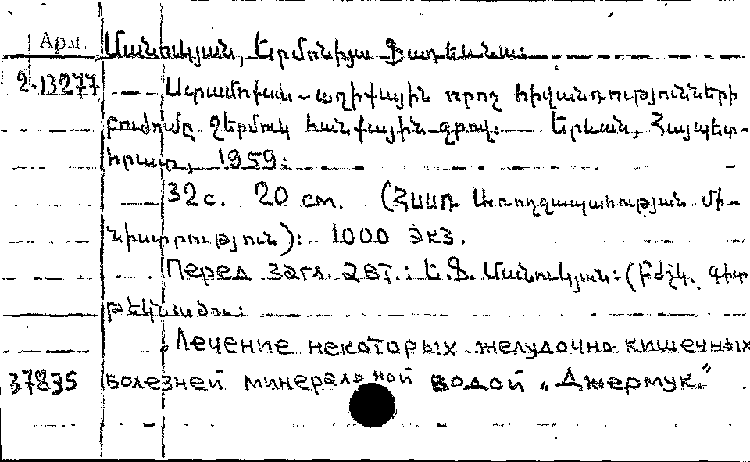 Арм. Մանուկյան, Երմոնիյա Փադեևնա:
2-13277 Ստամոքս-աղիքային որոշ հիվանդությունների
բուժումը Ջերմուկ հանքային ջրով: — Երևան, Հայպետ-
հրատ, 1959:
32 с. 20 cm. (ՀՍՍՌ Առողջապահության մի-
նիստրություն): 1000 экз.
Перед загл. авт.: Ե. Փ. Մանուկյան: (բժշկ. գիտ
թեկնածու:
Лечение некоторых желудочно кишечных
37835 болезней минеральной водой „Джермук."